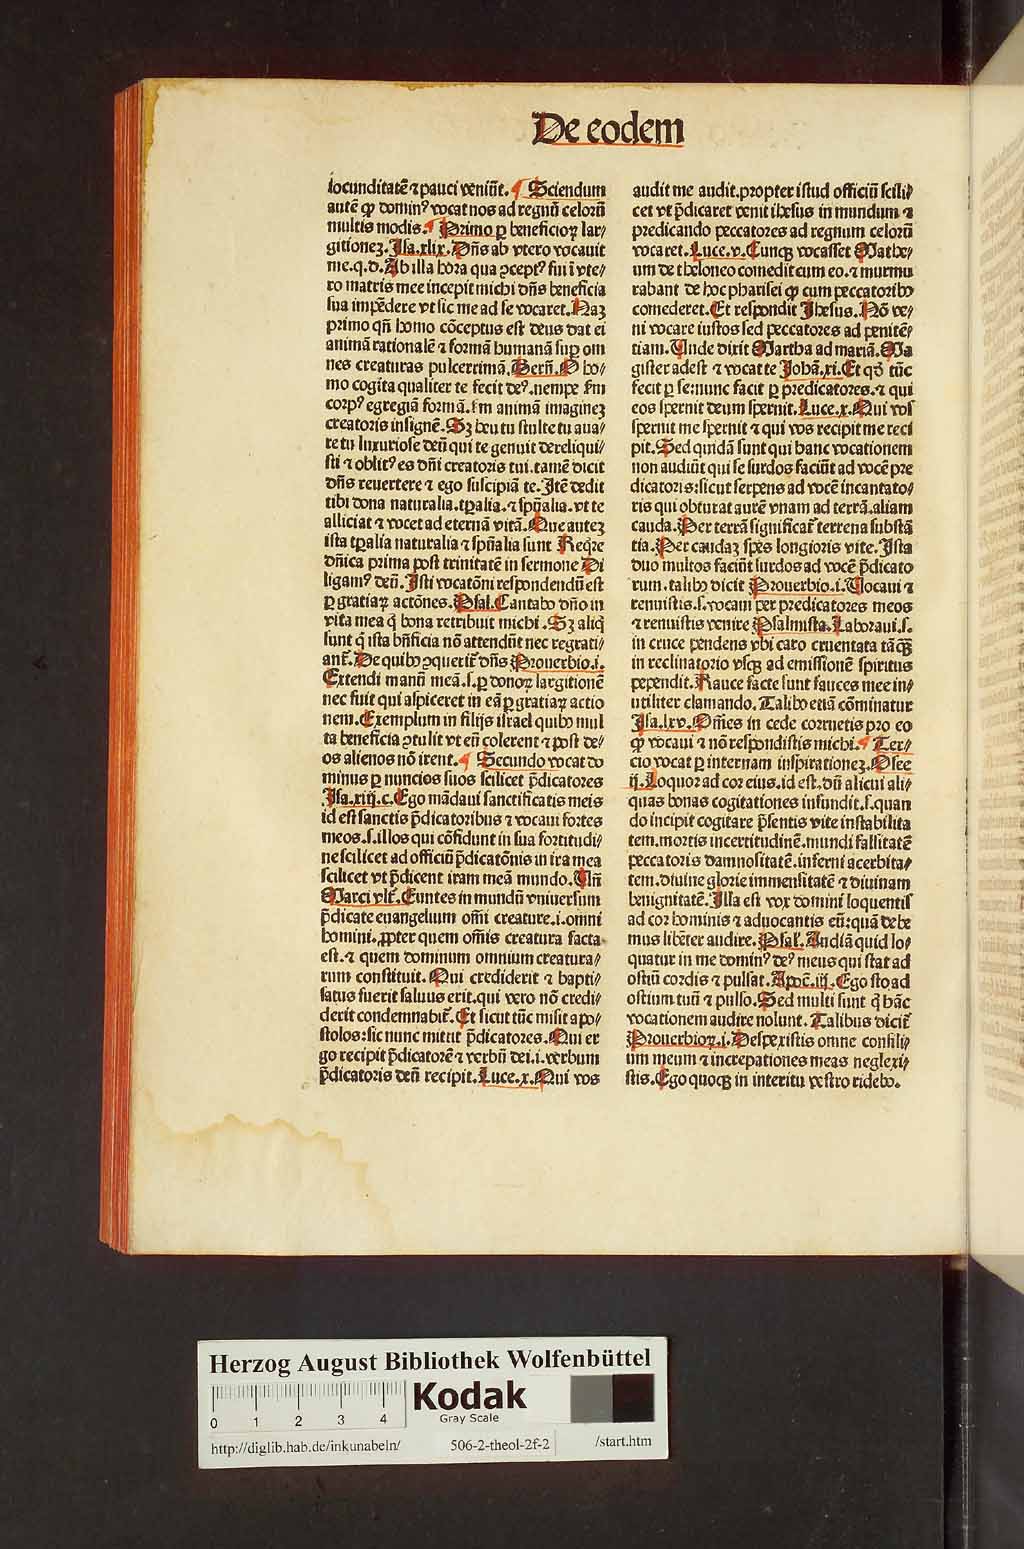 De eodem
iocunditatē ⁊ pauci veniūt. ¶ Sciendum
autē ꝙ domin⁹ vocat nos ad regnū celorū
multis modis. ¶ Primo ꝑ beneficioꝝ lar⸗
gitionez. Isa.xlix. Dñs ab vtero vocauit
me.q.d. Ab illa hora qua ꝯcept⁹ fui ī vte⸗
ro matris mee incepit michi dñs beneficia
sua impēdere vt sic me ad se vocaret. Naz
primo qñ homo cōceptus est deus dat ei
animā rationalē ⁊ formā humanā suꝑ om
nes creaturas pulcerrimā. Bern̄. O ho⸗
mo cogita qualiter te fecit de⁹. nempe ẜm
corp⁹ egregiā formā. ẜm animā imaginez
creatoris insignē. Sꝫ heu tu stulte tu aua⸗
re tu luxuriose deū qui te genuit dereliqui⸗
sti ⁊ oblit⁹ es dñi creatoris tui. tamē dicit
dñs reuertere ⁊ ego suscipiā te. Itē dedit
tibi dona naturalia. tꝑalia. ⁊ spūalia. vt te
alliciat ⁊ vocet ad eternā vitā. Que autez
ista tꝑalia naturalia ⁊ spūalia sunt Reqre
dñica prima post trinitatē in sermone Di
ligam⁹ deū. Isti vocatōni respondendū est
ꝑ gratiaꝝ actōnes. Psal. Cantabo dño in
vita mea q̇ bona retribuit michi. Sꝫ aliq̇
sunt q̇ ista bn̄ficia nō attendūt nec regrati⸗
ant᷑. De quibꝰ ꝯquerit᷑ dñs Prouerbio.i.
Extendi manū meā.s. ꝑ donoꝝ largitionē
nec fuit qui aspiceret in eā ꝑ gratiaꝝ actio
nem. Exemplum in filijs israel quibꝰ mul
ta beneficia ꝯtulit vt eū colerent ⁊ post de⸗
os alienos nō irent. ¶ Secundo vocat do
minus ꝑ nuncios suos scilicet p̄dicatores
Isa.xiij.c. Ego mādaui sanctificatis meis
id est sanctis p̄dicatoribus ⁊ vocaui fortes
meos.s. illos qui cōfidunt in sua fortitudi⸗
ne scilicet ad officiū p̄dicatōnis in ira mea
scilicet vt p̄dicent iram meā mundo. Vn̄
Marci vlt᷑. Euntes in mundū vniuersum
p̄dicate euangelium om̄i creature.i. omni
homini. ꝓpter quem om̄is creatura facta
est. ⁊ quem dominum omnium creatura⸗
rum constituit. Qui crediderit ⁊ bapti⸗
satus fuerit saluus erit. qui vero nō credi⸗
derit condemnabit᷑. Et sicut tūc misit apo⸗
stolos: sic nunc mittit p̄dicatores. Qui er
go recipit p̄dicatorē ⁊ verbū dei.i. verbum
p̄dicatoris deū recipit. Luce.x. Qui vos
audit me audit. propter istud officiū scili⸗
cet vt p̄dicaret venit ihesus in mundum ⁊
predicando peccatores ad regnum celorū
vocaret. Luce.v. Cunqꝫ vocasset Mathe⸗
um de theloneo comedit cum eo. ⁊ murmu
rabant de hoc pharisei ꝙ cum peccatoribꝰ
comederet. Et respondit Jhesus. Nō ve⸗
ni vocare iustos sed peccatores ad penitē⸗
tiam. Unde dixit Martha ad mariā. Ma
gister adest ⁊ vocat te Johā.xi. Et qd̄ tūc
fecit ꝑ se: nunc facit ꝑ predicatores. ⁊ qui
eos spernit deum spernit. Luce.x. Qui vos
spernit me spernit ⁊ qui vos recipit me reci
pit. Sed quidā sunt qui hanc vocationem
non audiūt qui se surdos faciūt ad vocē pre
dicatoris: sicut serpens ad vocē incantato⸗
ris qui obturat aurē vnam ad terrā. aliam
cauda. Per terrā significat᷑ terrena substā
tia. Per caudaꝫ spes longioris vite. Ista
duo multos faciūt surdos ad vocē p̄dicato
rum. talibꝰ dicit Prouerbio.i. Vocaui ⁊
rennuistis.s. vocaui per predicatores meos
⁊ rennuistis venire Psalmista. Laboraui.s.
in cruce pendens vbi caro cruentata tāqꝫ
in reclinatorio vsqꝫ ad emissionē spiritus
pependit. Rauce facte sunt fauces mee in⸗
utiliter clamando. Talibꝰ etiā cōminatur
Isa.lxv. Om̄es in cede corruetis pro eo
ꝙ vocaui ⁊ nō respondistis michi. ¶ Ter⸗
cio vocat ꝑ internam inspirationez. Osee
ij. Loquor ad cor eius. id est. dū alicui ali⸗
quas bonas cogitationes infundit.s. quan
do incipit cogitare p̄sentis vite instabilita
tem. mortis incertitudinē. mundi fallitatē
peccatoris damnositatē. inferni acerbita⸗
tem. diuine glorie immensitatē ⁊ diuinam
benignitatē. Illa est vox domini loquentis
ad cor hominis ⁊ aduocantis eū: quā debe
mus libēter audire. Psal᷑. Audiā quid lo⸗
quatur in me domin⁹ de⁹ meus qui stat ad
ostiū cordis ⁊ pulsat. Apoc̄.iij. Ego sto ad
ostium tuū ⁊ pulso. Sed multi sunt q̇ hāc
vocationem audire nolunt. Talibus dicit᷑
Prouerbioꝝ.i. Despexistis omne consili⸗
um meum ⁊ increpationes meas neglexi⸗
stis. Ego quoqꝫ in interitu vestro ridebo.
Herzog August Bibliothek Wolfenbüttel
0 1 2 3 4
Kodak
Gray Scale
http://diglib.hab.de/inkunabeln/ 506-2-theol-2f-2 /start.htm